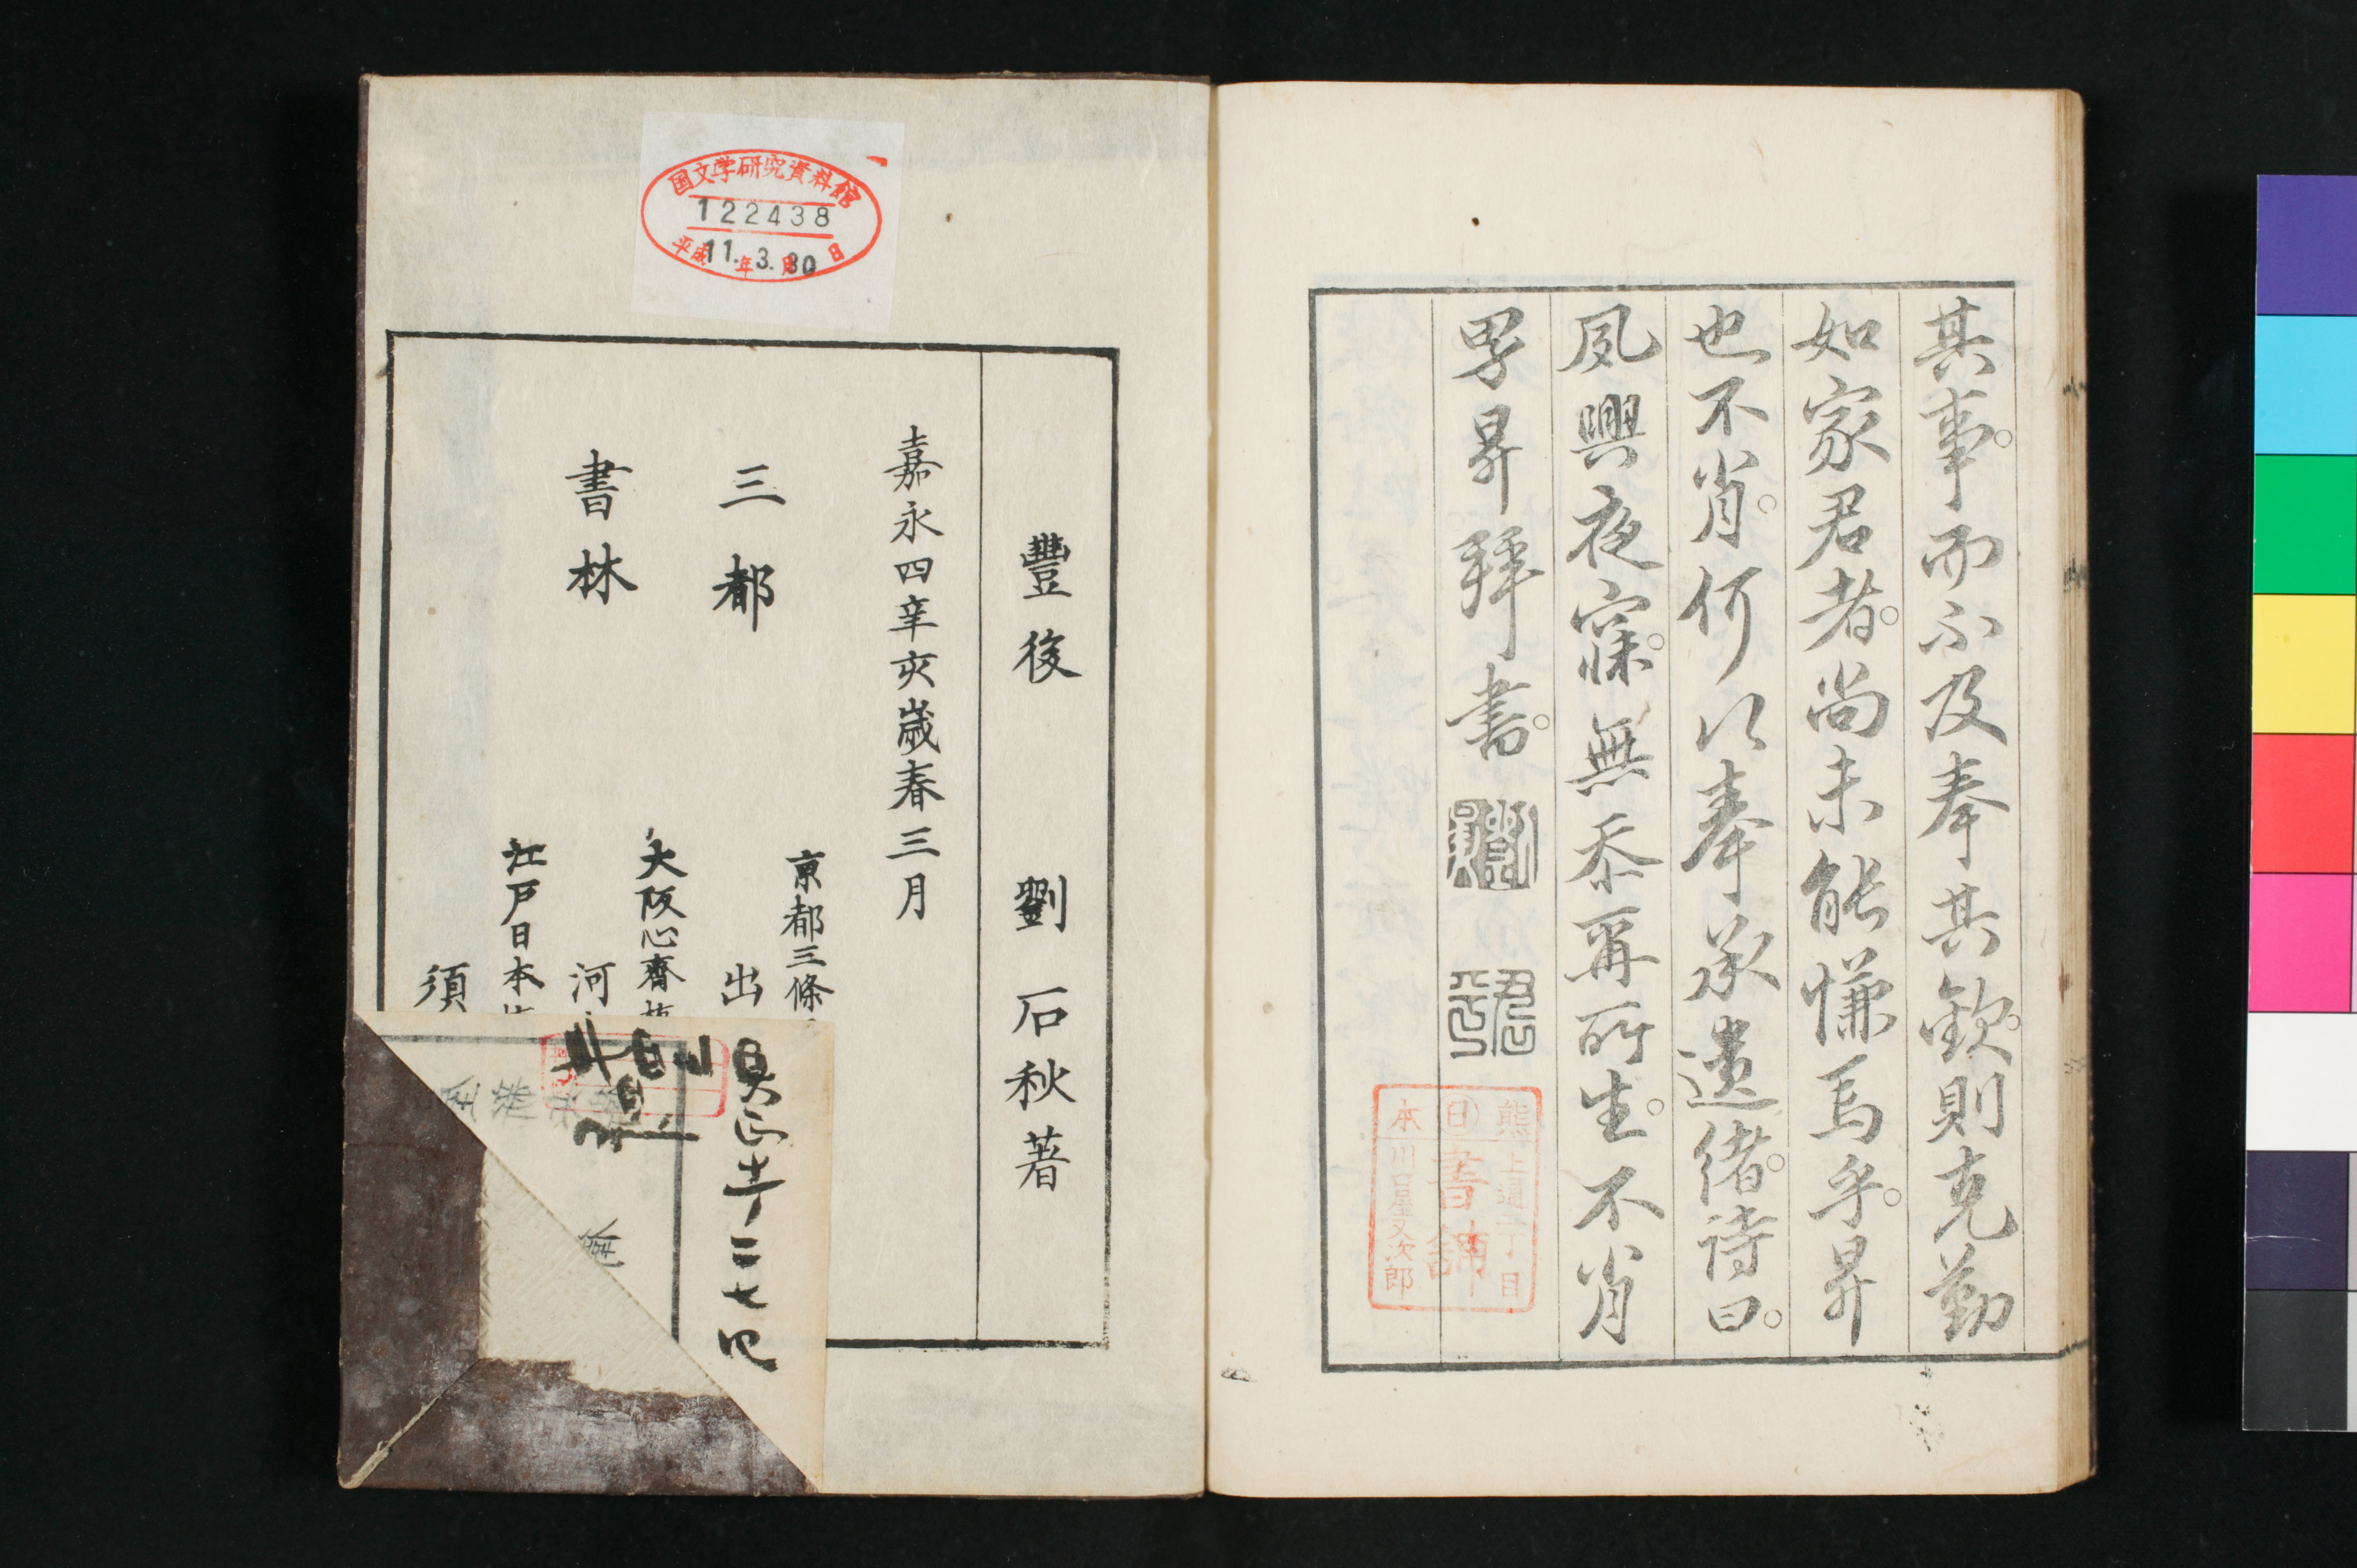 其事。而不及奉其歓。則克勤
如家君者。尚未能慊焉乎。昇
也不肖。何以奉承遺緒。詩曰。
夙興夜寐。無忝爾所生。不肖
男昇拜書。
熊
上通二丁目
書舗
本
川口屋又次郎
国文学研究資料館
122438
平成11年3月30日
豐後 劉石秋著
嘉永四辛亥歳春三月
三都
書林
京都三條
出
大阪心齋
河
江戸日本
須